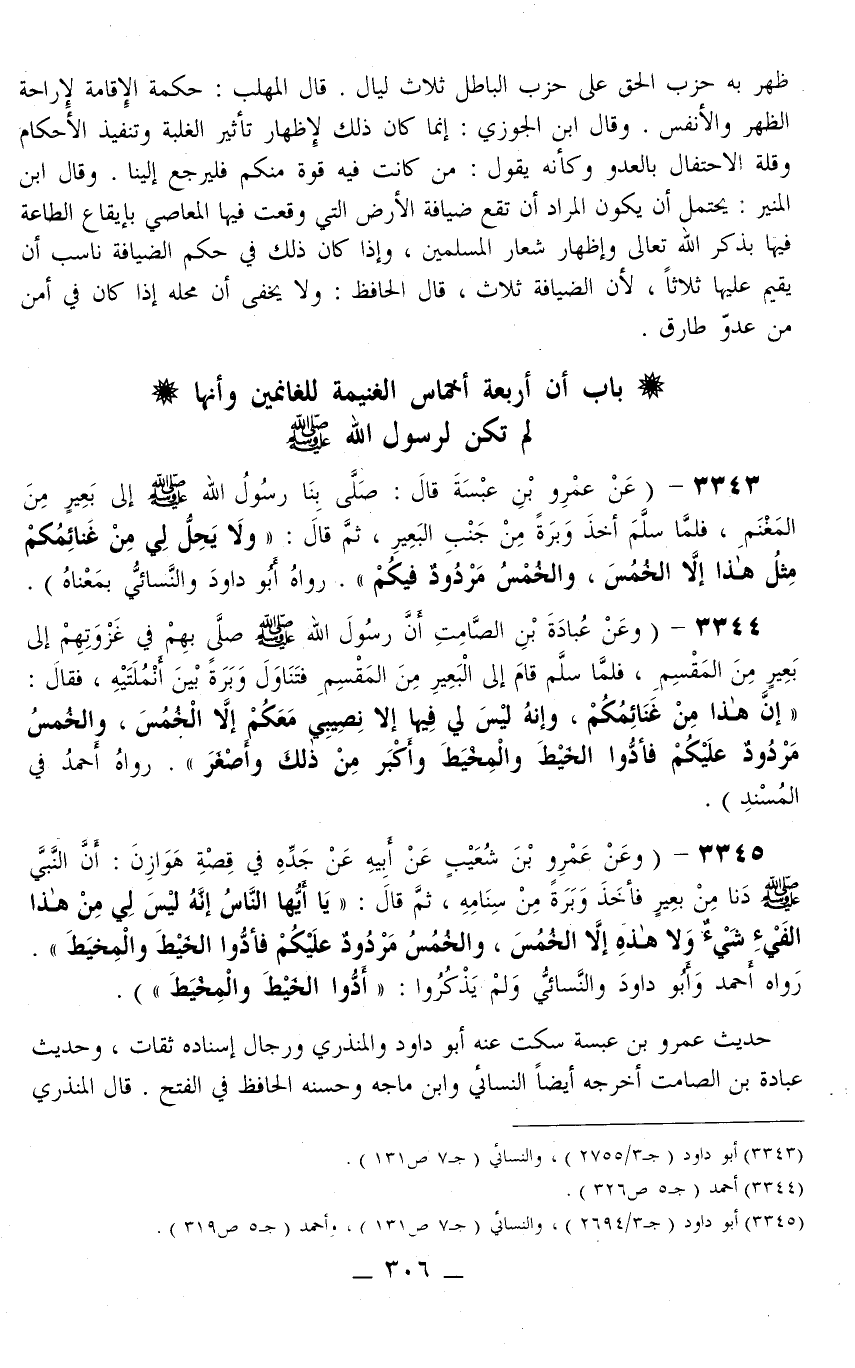 ظهر به حزب الحق على حزب الباطل ثلاث ليال . قال المهلب : حكمة الإقامة لإراحة
الظهر والأنفس . وقال ابن الجوزي : إنما كان ذلك لإظهار تأثير الغلبة وتنفيذ الأحكام
وقلة الاحتفال بالعدو وكأنه يقول : من كانت فيه قوة منكم فليرجع إلينا . وقال ابن
المنير : يحتمل أن يكون المراد أن تقع ضيافة الأرض التي وقعت فيها المعاصي بإيقاع الطاعة
فيها بذكر الله تعالى وإظهار شعار المسلمين ، وإذا كان ذلك في حكم الضيافة ناسب أن
يقيم عليها ثلاثاً ، لأن الضيافة ثلاث ، قال الحافظ : ولا يخفى أن محله إذا كان في أمن
من عدوّ طارق .
❋ باب أن أربعة أخماس الغنيمة للغانمين وأنها ❋
لم تكن لرسول الله ﷺ
٣٣٤٣ – ( عَنْ عمْرِو بْنِ عبْسَةَ قالَ : صَلَّى بِنَا رسُولُ الله ﷺ إلى بَعِيرٍ مِنَ
المَغْنَمِ ، فلمَّا سلَّمَ أخذَ وَبَرَةً مِنْ جَنْبِ البَعِيرِ ، ثمَّ قالَ : « ولَا يَحِلُّ لِي مِنْ غَنائِمُكمْ
مِثلُ هٰذا إلَّا الخُمُسَ ، والخُمْسُ مَرْدُودٌ فيكُمْ » . رواهُ أَبُو داودَ والنَّسائيُّ بمَعْناهُ ) .
٣٣٤٤ – ( وعَنْ عُبادَةَ بْنِ الصَّامتِ أَنَّ رسُولَ الله ﷺ صلَّى بهِمْ في غَزْوَتِهِمْ إلى
بَعِيرٍ مِنَ المَقْسِمِ ، فلمَّا سلَّم قامَ إلى الْبَعِيرِ مِنَ المَقْسِمِ فتَنَاوَلَ وَبَرَةً بْينَ أَنْمُلَتَيْهِ ، فقالَ :
« إنَّ هٰذا مِنْ غَنَائِمُكُمْ ، وإنهُ ليْسَ لي فِيها إلا نِصِيبِي مَعَكُمْ إلَّا الْخُمُسَ ، والخُمسُ
مَرْدُودٌ علَيْكُمْ فأدُّوا الخَيْطَ والْمِخْيَطَ وأكْبَر مِنْ ذٰلكَ وأصْغَرَ » . رواهُ أَحمدُ في
المُسْندِ ) .
٣٣٤٥ – ( وعَنْ عَمْرِو بْنَ شُعَيْبٍ عَنْ أَبيهِ عَنْ جَدِّهِ في قِصَّةِ هَوَازِنَ : أَنَّ النَّبيَّ
ﷺ دَنا مِنْ بعِيرٍ فأخَذَ وَبَرَةً مِنْ سِنَامِهِ ، ثمَّ قالَ : « يَا أَيُّها النَّاسُ إنَّهُ ليْسَ لِي مِنْ هٰذا
الفَيْءِ شَيْءٌ وَلا هٰذهِ إلَّا الخُمُسَ ، والخُمُسُ مَرْدُودٌ عليْكُمْ فأدُّوا الخَيْطَ والْمِخيَطَ » .
رَواه أَحمد وَأَبُو داودَ والنَّسائيُّ ولَمْ يَذْكُرُوا : « أَدُّوا الخَيْطَ والْمِخْيَطَ » ) .
حديث عمرو بن عبسة سكت عنه أبو داود والمنذري ورجال إسناده ثقات ، وحديث
عبادة بن الصامت أخرجه أيضاً النسائي وابن ماجه وحسنه الحافظ في الفتح . قال المنذري
(٣٣٤٣) أبو داود ( جـ٢٧٥٥/٣ ) ، والنسائي ( جـ٧ ص١٣١ ) .
(٣٣٤٤) أحمد ( جـ٥ ص٣٢٦ ) .
(٣٣٤٥) أبو داود ( جـ٢٦٩٤/٣ ) ، والنسائي ( جـ٧ ص١٣١ ) ، وأحمد ( جـ٥ ص٣١٩ ) .
– ٣٠٦ –